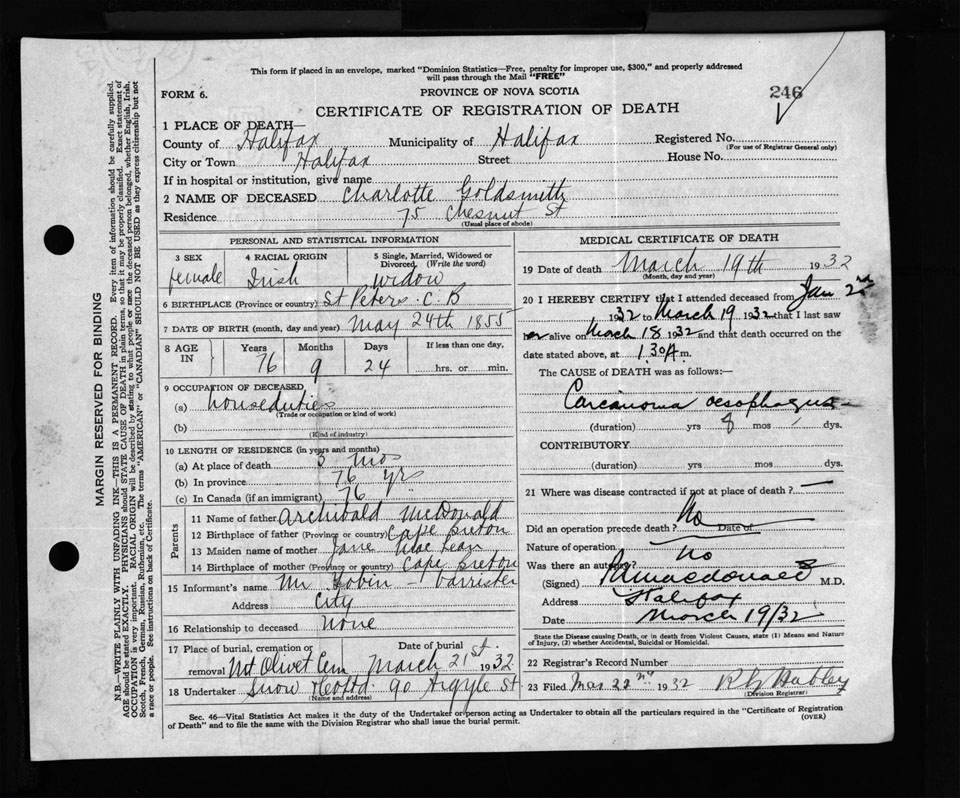 This form if placed in an envelope, marked "Dominion Statistics—Free, penalty for improper use, $300," and properly addressed
will pass through the Mail "FREE"
FORM 6.
PROVINCE OF NOVA SCOTIA
246
CERTIFICATE OF REGISTRATION OF DEATH
1 PLACE OF DEATH—
County of Halifax Municipality of Halifax Registered No.
(For use of Registrar General only)
City or Town Halifax Street House No.
If in hospital or institution, give name
2 NAME OF DECEASED Charlotte Goldsmith
Residence 75 Chesnut St
(Usual place of abode)
PERSONAL AND STATISTICAL INFORMATION
3 SEX 4 RACIAL ORIGIN 5 Single, Married, Widowed or
Divorced. (Write the word)
female Irish widow
6 BIRTHPLACE (Province or country) St Peters C.B
7 DATE OF BIRTH (month, day and year) May 24th 1855
8 AGE IN Years Months Days If less than one day,
76 9 24 hrs. or min.
9 OCCUPATION OF DECEASED
(a) houseduties
(Trade or occupation or kind of work)
(b)
(Kind of industry)
10 LENGTH OF RESIDENCE (in years and months)
(a) At place of death 3 mos
(b) In province 76 yrs
(c) In Canada (if an immigrant) 76 "
Parents
11 Name of father Archibald McDonald
12 Birthplace of father (Province or country) Cape Breton
13 Maiden name of mother Jane MacLean
14 Birthplace of mother (Province or country) Cape Breton
15 Informant's name Mr Tobin - barrister
Address City
16 Relationship to deceased None
17 Place of burial, cremation or removal Mt Olivet Cem Date of burial March 21st 1932
18 Undertaker Snow & Co Ltd 90 Argyle St
(Name and address)
MEDICAL CERTIFICATE OF DEATH
19 Date of death March 19th 1932
(Month, day and year)
20 I HEREBY CERTIFY that I attended deceased from Jan 2nd
1932 to March 19 1932 that I last saw
alive on March 18 1932 and that death occurred on
date stated above, at 1.30 A m.
The CAUSE of DEATH was as follows:—
Carcanoma oesophagus
(duration) yrs 8 mos dys.
CONTRIBUTORY
(duration) yrs mos dys.
21 Where was disease contracted if not at place of death? —
Did an operation precede death? No Date of
Nature of operation
Was there an autopsy? no
(Signed) Macdonald M.D.
Address Halifax
Date March 19/32
State the Disease causing Death, or in death from Violent Causes, state (1) Means and Nature
of Injury, (2) whether Accidental, Suicidal or Homicidal.
22 Registrar's Record Number
23 Filed Mar 22nd 1932
(Division Registrar)
Sec. 46—Vital Statistics Act makes it the duty of the Undertaker or person acting as Undertaker to obtain all the particulars required in the "Certificate of Registration
of Death" and to file the same with the Division Registrar who shall issue the burial permit.
(OVER)
MARGIN RESERVED FOR BINDING
N.B.—WRITE PLAINLY WITH UNFADING INK—THIS IS A PERMANENT RECORD. Every item of information should be carefully supplied.
AGE should be stated EXACTLY. PHYSICIANS should STATE CAUSE OF DEATH in plain terms, so that it may be properly classified. Exact statement of
OCCUPATION is very important. RACIAL ORIGIN will be described by stating to what people or race the deceased person belonged, whether English, Irish,
Scotch, French, German, Russian, Ruthenian, etc. The terms "AMERICAN" or "CANADIAN" SHOULD NOT BE USED as they express citizenship but not
a race or people. See instructions on back of Certificate.